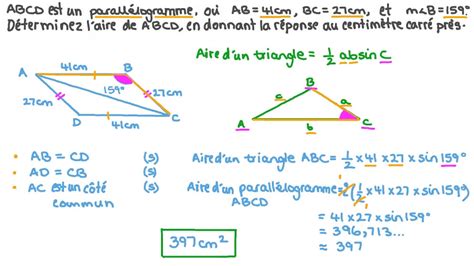 ABCD est un parallélogramme, où AB = 41cm, BC = 27cm, et m∠B = 159°.
Déterminez l'aire de ABCD, en donnant la réponse au centimètre carré près.
Aire d'un triangle = 1/2 ab sin C
41cm
A
B
159°
27cm
27cm
D
41cm
C
B
c
a
A
b
C
• AB = CD (S)
• AD = CB (S)
• AC est un côté commun (S)
Aire d'un triangle ABC = 1/2 × 41 × 27 × sin 159°
Aire d'un parallélogramme ABCD = 2(1/2 × 41 × 27 × sin 159°)
= 41 × 27 × sin 159°
= 396,713...
≈ 397
397 cm²